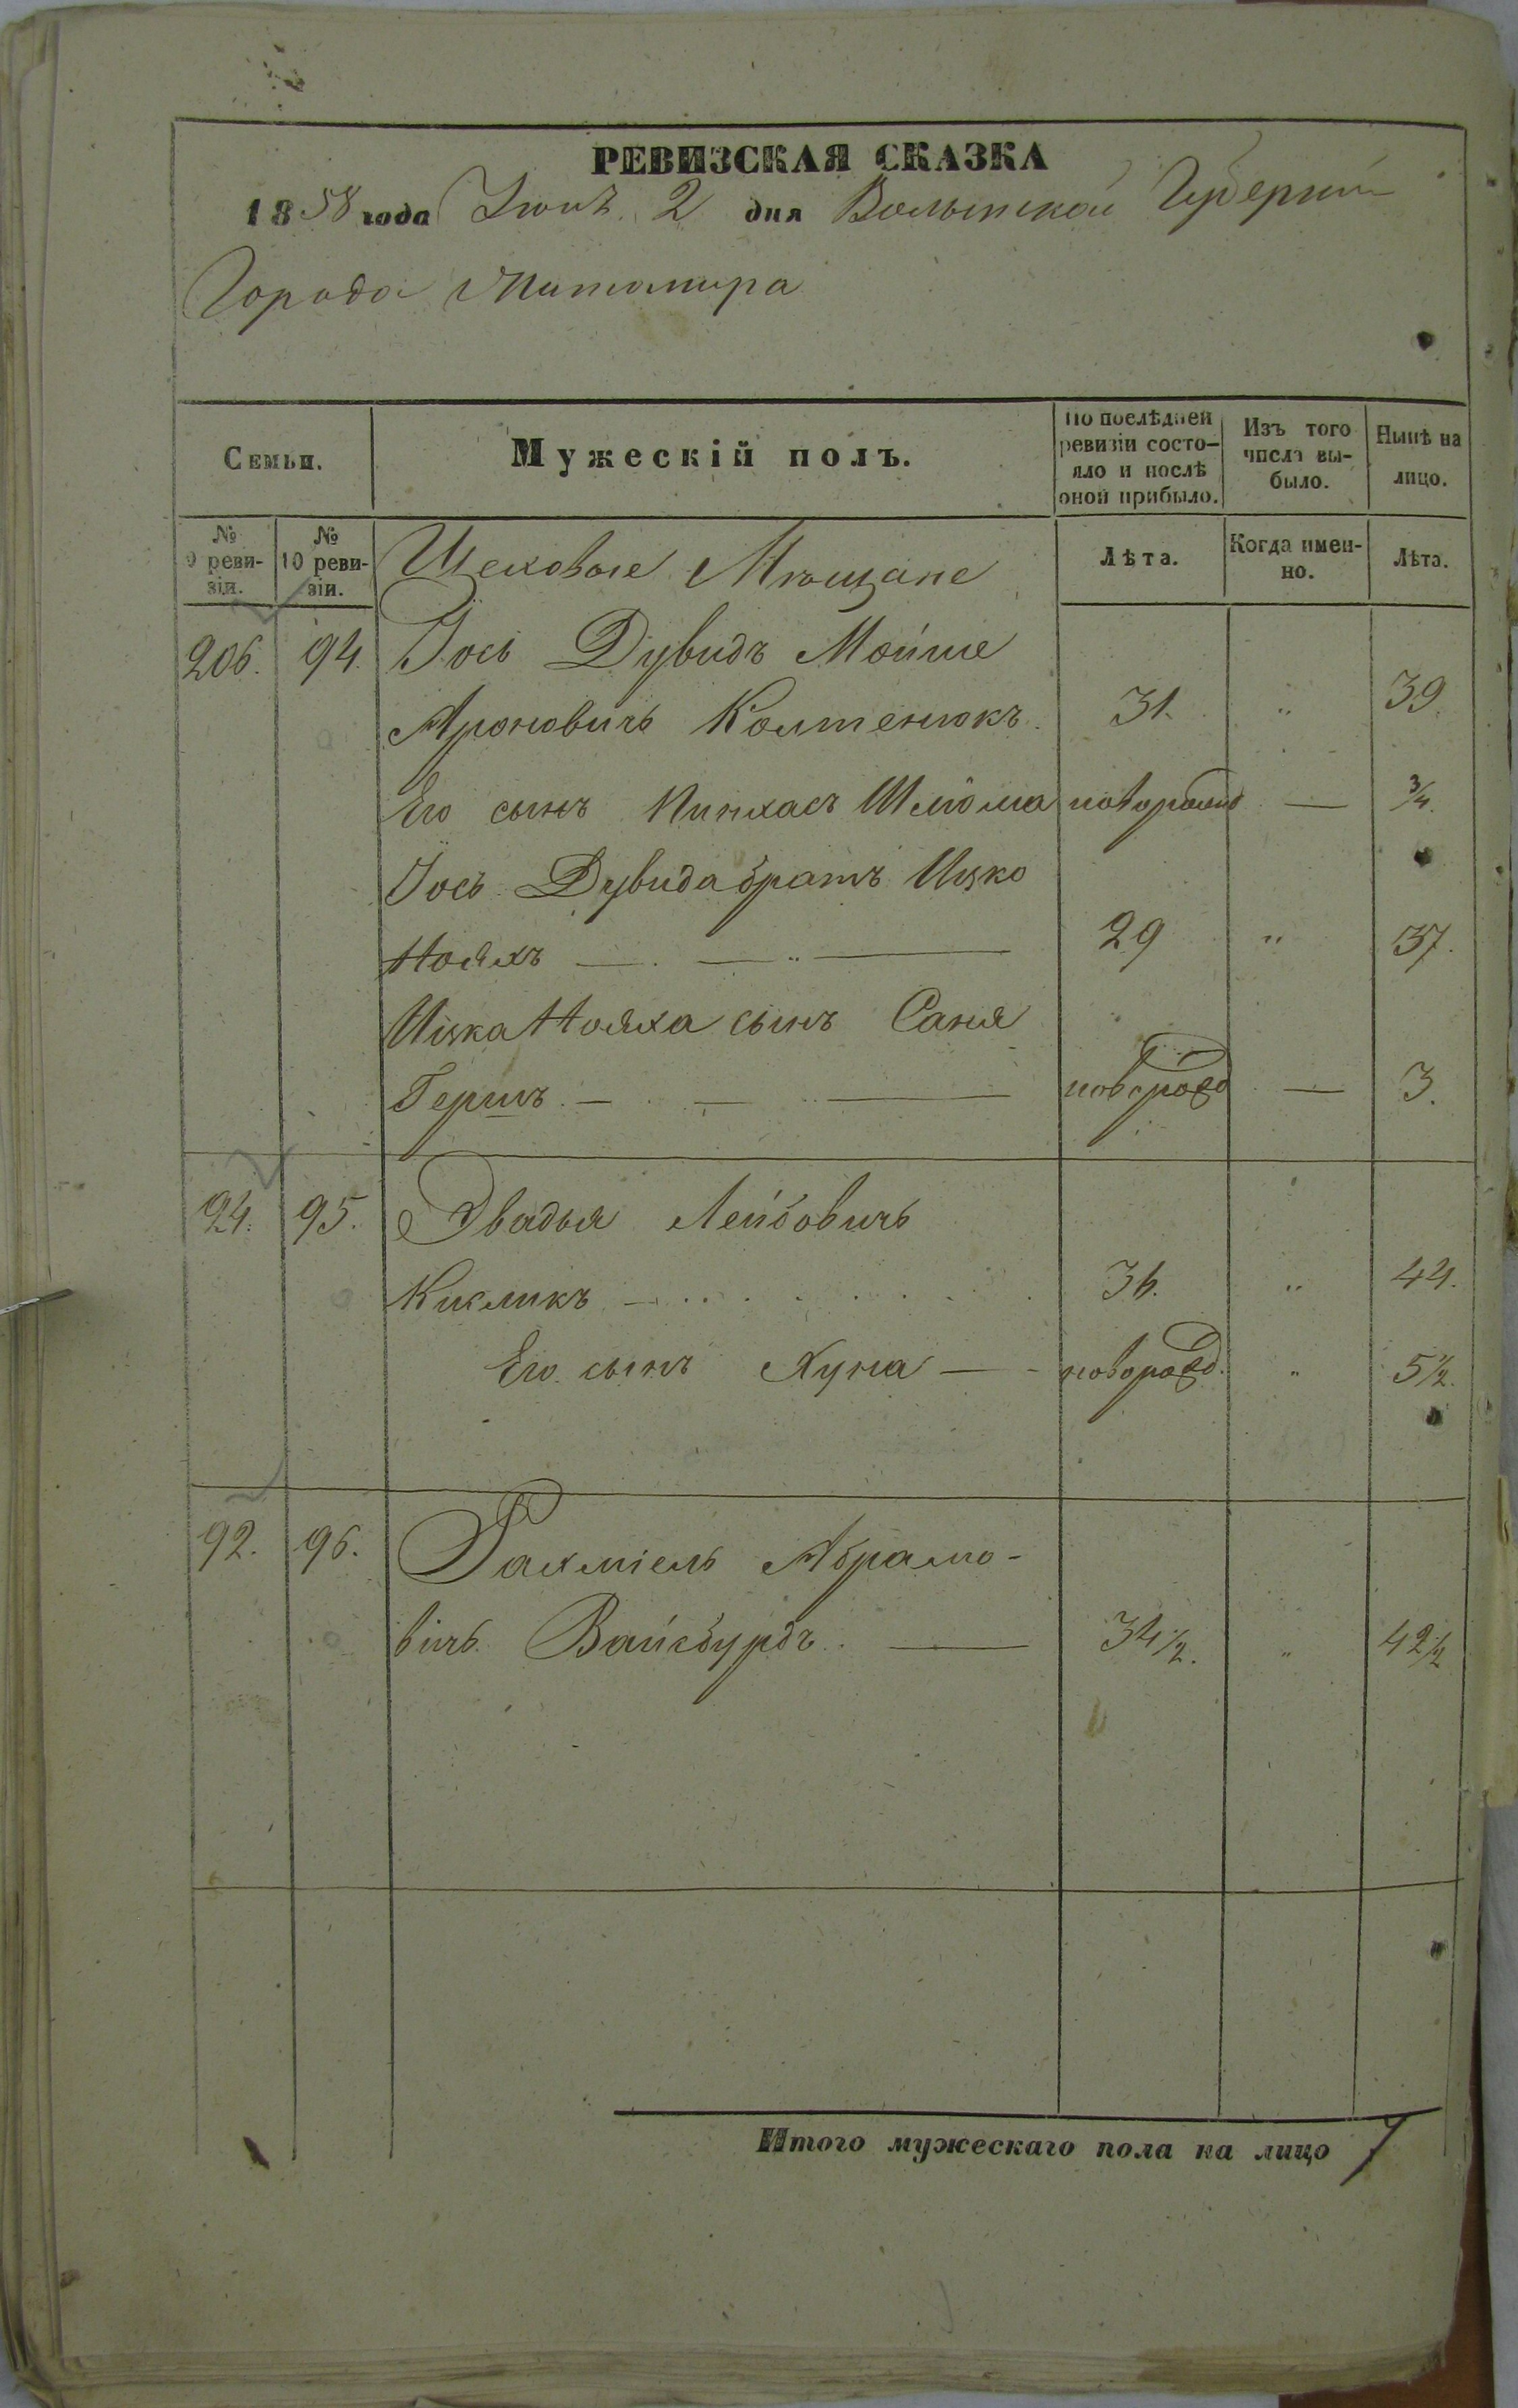 РЕВИЗСКАЯ СКАЗКА
1858 года Іюнѣ 2 дня Волынской Губерніи
Города Житомира
Семьи.
Мужескій полъ.
По послѣдней ревизіи состо-
яло и послѣ
оной прибыло.
Изъ того
числа вы-
было.
Нынѣ на
лицо.
№
9 реви-
зіи.
№
10 реви-
зіи.
Цеховые Мѣщане
Лѣта.
Когда имен-
но.
Лѣта.
206. 94. Іось Дувидъ Мойше
Ароновичь Колтенюкъ. 31. " 39.
Его сынъ Пинхасъ Шлиома новорожд — 3/4.
Іось Дувида братъ Ицко
Нояхъ — . — .. — 29 " 37.
Ицка Нояха сынъ Саня
Гершъ. — . — .. — новорожд — 3.
94. 95. Овадья Лейбовичь
Кикликъ — . . . . . . . 36. " 44.
Его сынъ Хуна — - новорожд. " 5 1/2.
92. 96. Рахміель Абрамо-
вичь. Вайсбурдъ. — 34 1/2. " 42 1/2
Итого мужескаго пола на лицо 7